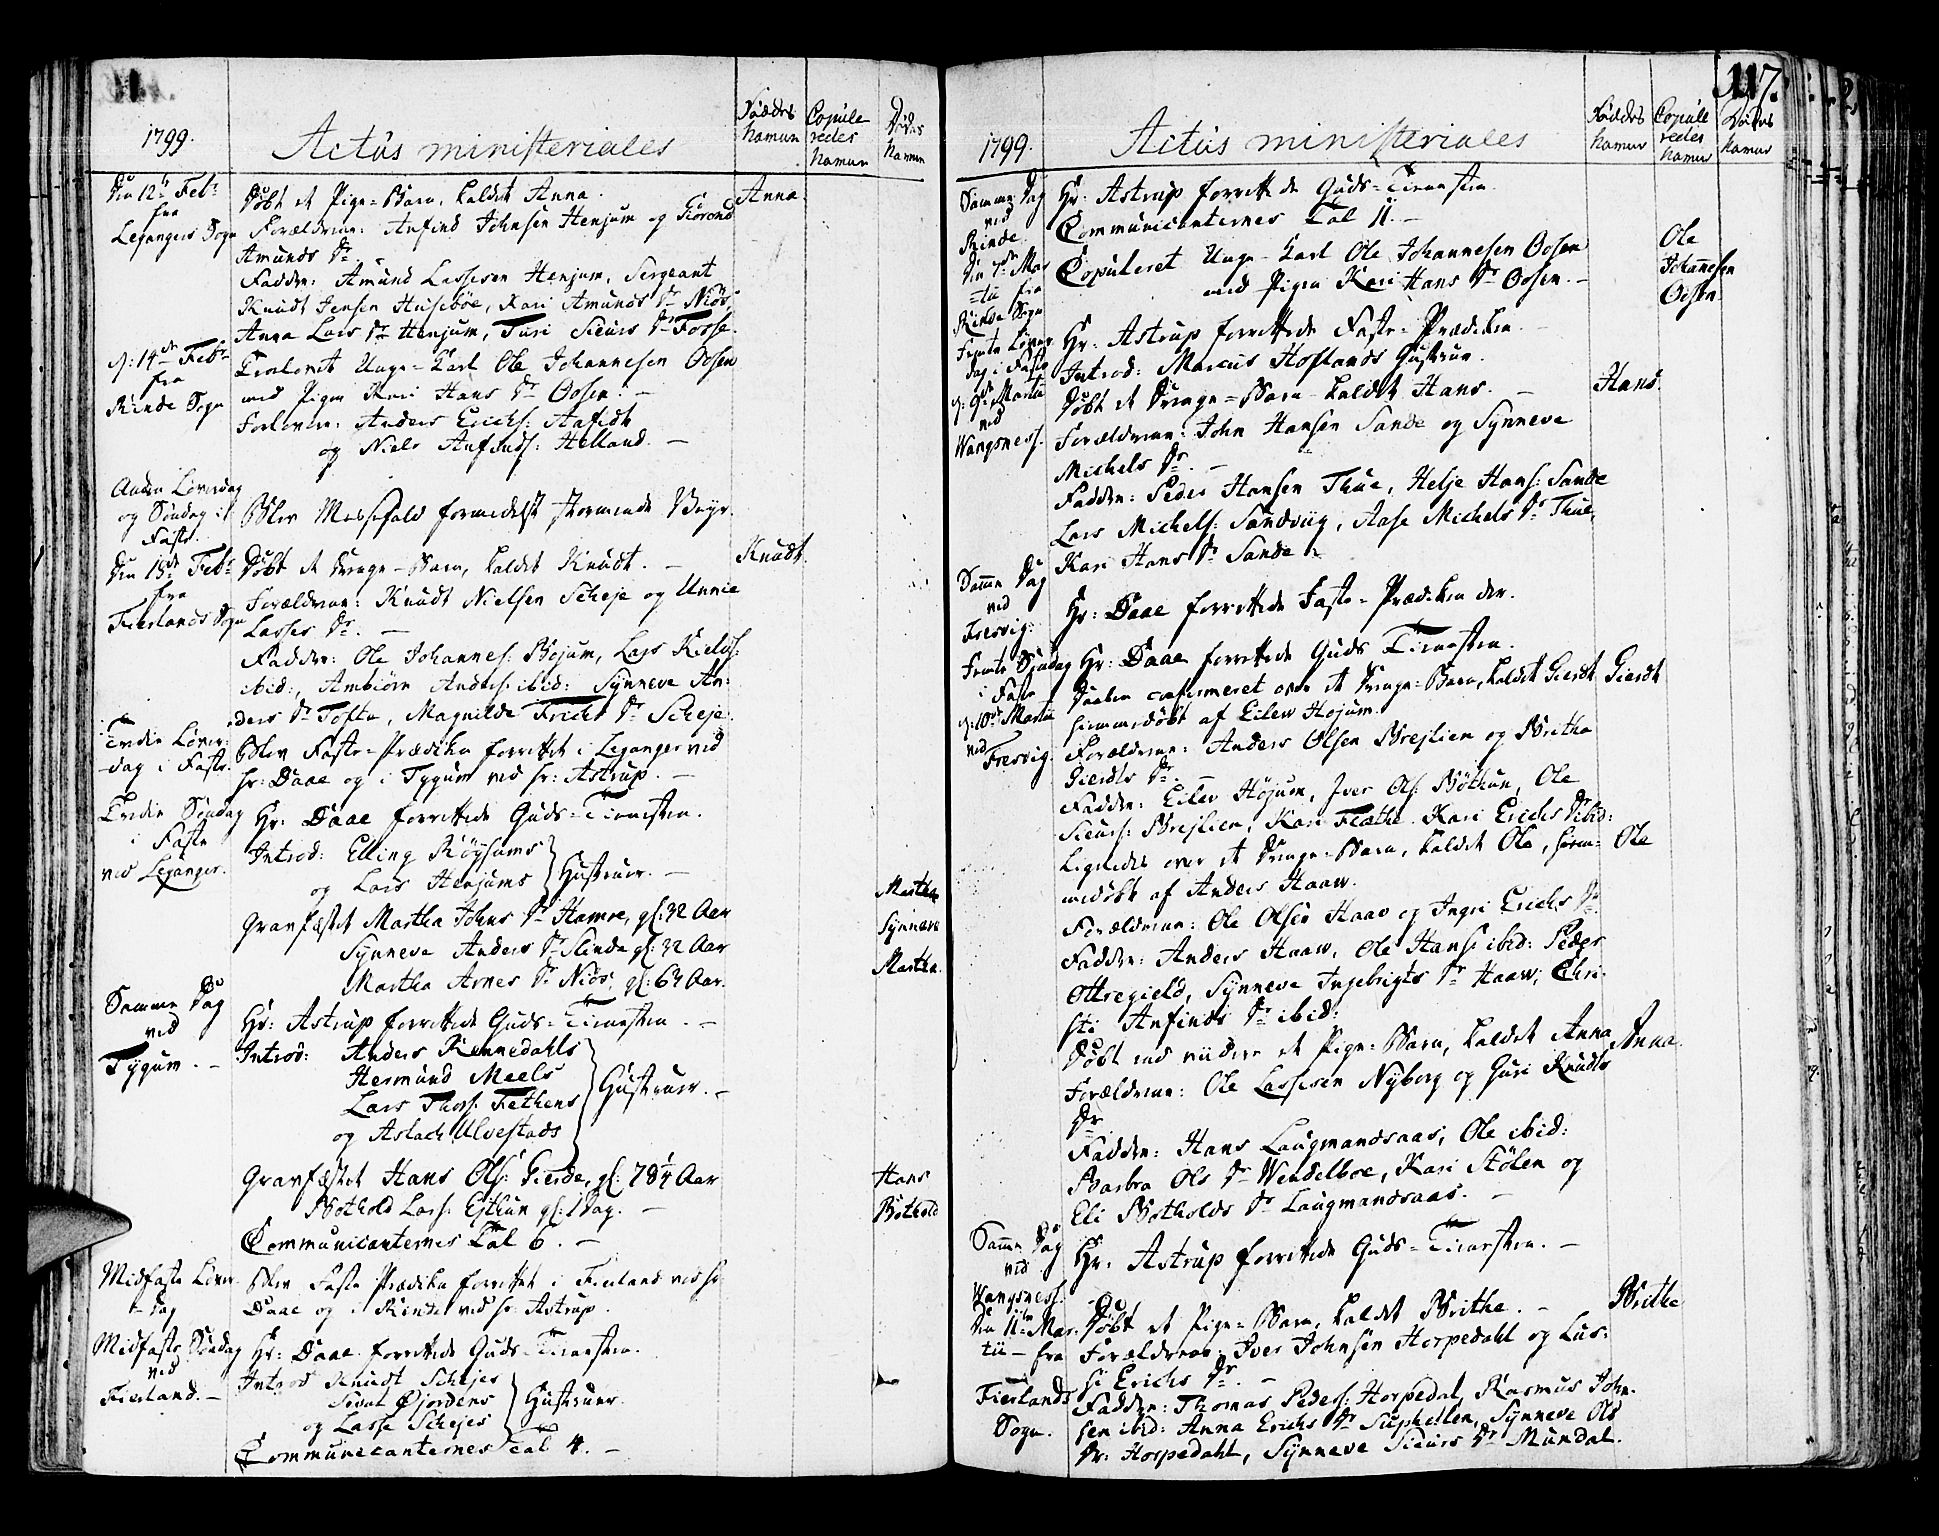 1799.
Actus ministeriales
Fødtes Namne
Copule redes Namne
Dødes Namne
Den 12te Febr fra Leganger Sogn
Døbt et Pige-Barn, kaldet Anna.
Anna
Forældrene: Anfind Johnsen Henjum og
Amunds Dr
Faddere: Amund Lassesen Henjum, Sergeant
Knudt Jensen Husebøe, Kari Amunds Dr Niøs,
Anna Lars Dr Henjum, Turi Siurs Dr Fosse.
d: 14de Febr fra Rinde Sogn
Trolovet Unge-Karl Ole Johannesen Oosen
med Pigen Kari Hans Dr Oosen. –
Forlovere: Anders Erichs: Aafedt
og Niels Anfinds: Helland. –
Anden Løverdag og Søndag i Faste.
Blev Messefald formedelst stormende Veyr.
Den 15de Febr fra Fierlands Sogn
Døbt et Drenge-Barn, kaldet Knudt. –
Knudt.
Forældrene: Knudt Nielsen Scheje og Unnie
Lasses Dr. –
Faddere: Ole Johannes: Bojum, Lars Kields:
ibid:, Ambiørn Anders: ibid: Synneve An-
ders Dr Tofte, Magnilde Erichs Dr Scheje.
Tredie Løverdag i Faste.
Blev Faste-Prædiken forrettet i Leganger ved
Hr: Daae og i Tygum ved Hr: Astrup. –
Tredie Søndag i Faste ved Leganger.
Hr: Daae forrettede Guds-Tienesten.
Introd: Elling Röysums
og Lars Henjums } Hustruer. –
Gravfæstet Martha Johns Dr Hamre, gl: 32 Aar
Martha
Synneve Anders Dr Slinde gl: 32 Aar
Synneve
Martha Arnes Dr Niøs, gl: 64 Aar.
Martha.
Samme Dag ved Tygum. –
Hr: Astrup forrettede Guds-Tienesten. –
Introd: Anders Rennedahls
Hermund Meels
Lars Thors: Fethens
og Aslach Ulvestads } Hustruer. –
Gravfæstet Hans Ols: Gierde, gl: 78 1/4 Aar
Hans
Bothold Lars: Esthun gl: 1 Dag. –
Bothold
Communicanternes Tal 6. –
Midfaste Løverdag
Blev Faste Prædiken forrettet i Fierland ved Hr
Daae og i Rinde ved Hr: Astrup.
Midfaste Søndag ved Fierland. –
Hr: Daae forrettede Guds-Tienesten.
Introd Knudt Schejes
Øjordens
og Lasse Schejes } Hustruer.
Communicanternes Tal 4. –
117.
1799.
Actus ministeriales
Fødtes Namne
Copule redes Namne
Dødes Namne
Samme Dag ved Rinde.
Hr: Astrup forrettede Guds-Tienesten.
Communicanternes Tal 11. –
Den 7de Martii fra Rinde Sogn
Copuleret Unge-Karl Ole Johannesen Oosen
med Pigen Kari Hans Dr Oosen. –
Ole Johannesen Oosen
Femte Løverdag i Faste d: 9de Martii ved Wangsness.
Hr: Astrup forrettede Faste-Prædiken. –
Introd: Marcus Hoflands Hustrue.
Døbt et Drenge-Barn kaldet Hans. –
Hans.
Forældrene: John Hansen Sande og Synneve
Michels Dr. –
Faddere: Peder Hansen Thue, Helje Hans: Sande
Lars Michels: Sandviig, Aase Michels Dr Thue,
Kari Hans Dr Sande.
Samme Dag ved Fresvig:
Hr: Daae forrettede Faste-Prædiken der.
Femte Søndag i Faste d: 10de Martii ved Fresvig.
Hr: Daae forrettede Guds Tienesten.
Daaben confirmeret over et Drenge-Barn, kaldet Gierdt
Gierdt
hiemmedøbt af Eilev Højum.
Forældrene: Anders Olsen Brejlien og Britha
Gierdts Dr. –
Faddere: Eilev Höjum, Iver Ols: Böthun, Ole
Siurs: Brejlien, Kari Flæthe. Kari Erichs Dr ibid:
Ligeledes over et Drenge-Barn, kaldet Ole, hiem-
Ole
medøbt af Anders Haaw.
Forældrene: Ole Olsen Haaw og Ingri Erichs Dr
Faddere: Anders Haaw, Ole Hans: ibid: Peder
Ottregield, Synneve Ingebrigts Dr Haaw, Chri-
sti Anfinds Dr ibid:
Døbt end videre et Pige-Barn, kaldet Anna
Anna.
Forældrene: Ole Lassesen Nyborg og Guri Knudts
Dr
Faddere: Hans Laugmandsaas, Ole ibid:
Barbra Ols Dr Wendelboe, Kari Stölen og
Eli Botholds Dr Laugmandsaas. –
Samme Dag ved Wangsness.
Hr: Astrup forrettede Guds-Tienesten. –
Den 11te Martii – fra Fierlands Sogn.
Døbt et Pige-Barn, kaldet Brithe. –
Brithe
Forældrene: Iver Johnsen Horpedahl og Lus-
si Erichs Dr. –
Faddere: Thomas Peders: Horpedal, Rasmus John-
sen ibid: Anna Erichs Dr Suphellen, Synneve Ols
Dr: Horpedahl, Synneve Siurs Dr Mundal.